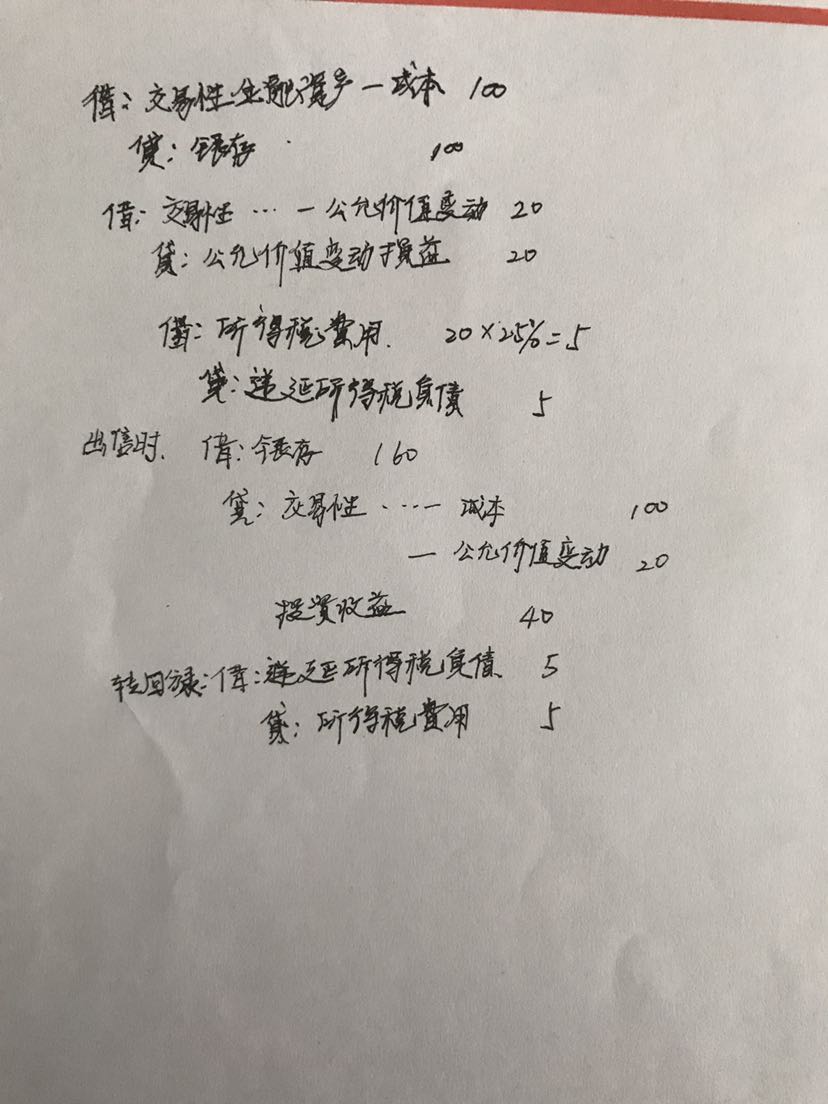 借：交易性金融资产一成本 100
贷：银存 100
借：交易性…一公允价值变动 20
贷：公允价值变动损益 20
借：所得税费用. 20×25%=5
贷：递延所得税负债 5
出售时. 借：银存 160
贷：交易性…一成本 100
一公允价值变动 20
投资收益 40
转回分录：借：递延所得税负债 5
贷：所得税费用 5